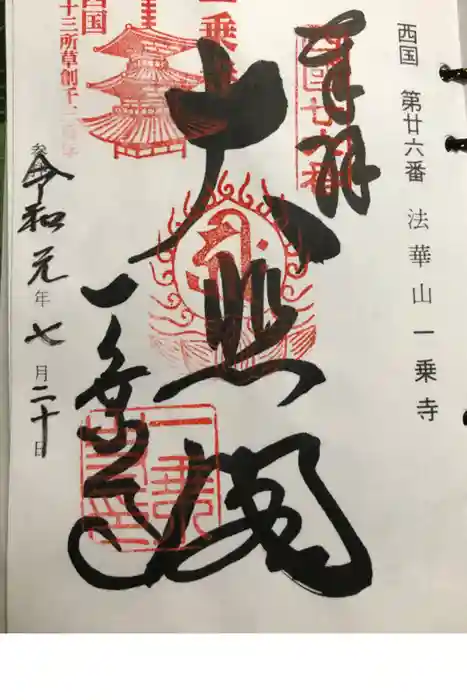 西国 第廿六番 法華山一乗寺
奉拝
西国廿六番
大悲閣
一乗寺
西国
十三所草創千
参拝
令和元年七月二十日